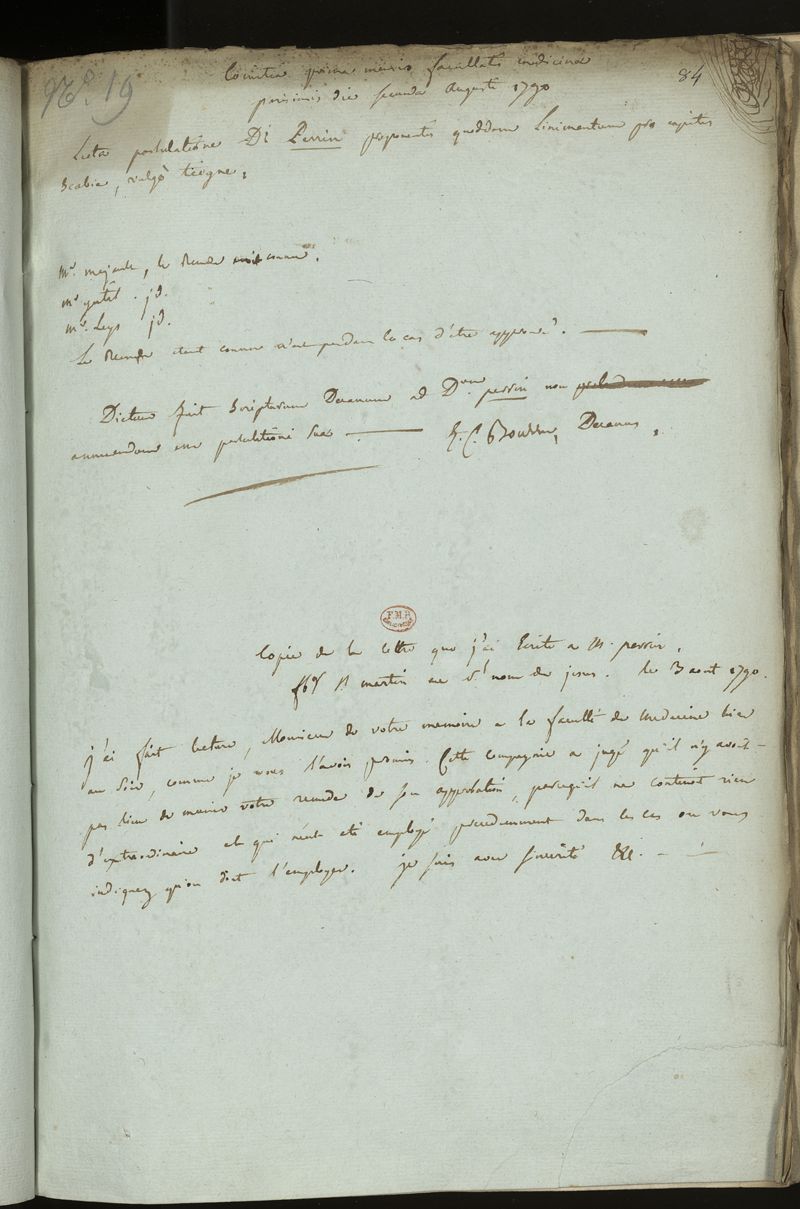 N° 19
84
Comitia prima mensis facultatis medicinæ
parisiensis die secunda Augusti 1790
Lecta postulatione Di Perrin proponentis quoddam Linimentum pro capitis
Scabie, vulgò teigne.
mr. majault, le Remede est connu.
mr. jd.
mr. Leys jd.
Le Remede etant connu n'est pas dans le cas d'être approuvé.
Dictum fuit Scripturum Decanum ad Dnum perrin non
annuendum esse postulationi suæ
Bourru, Decanus,
F.M.P.
Copie de la lettre que j'ai Ecrite a M. perrin,
fbg St martin au St nom de jesus. le 3 aout 1790.
j'ai fait lecture, Monsieur de votre memoire a la faculté de Medecine hier
au Soir, comme je vous l'avois promis. Cette Compagnie a jugé qu'il n'y avoit
pas lieu de munir votre remede de son approbation, parcequ'il ne contenoit rien
d'extraordinaire et qui n'eut eté employé precedemment dans les cas ou vous
indiquez qu'on doit l'employer. je suis avec sincerité &c.